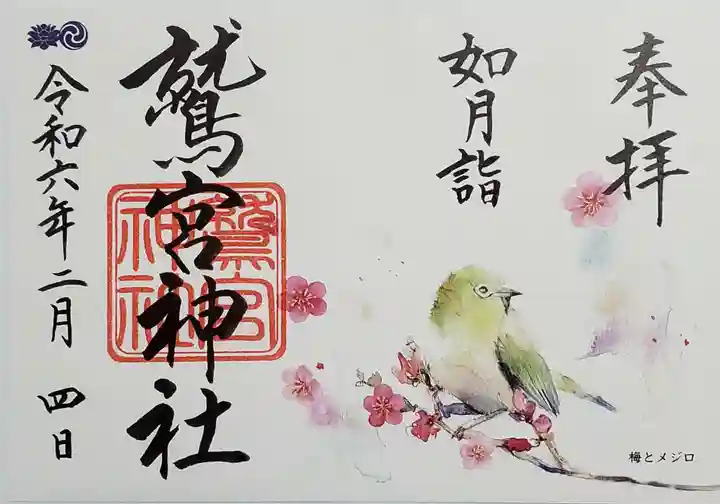 奉拝
如月詣
鷲宮神社
鷲宮
神社
令和六年二月 四日
梅とメジロ